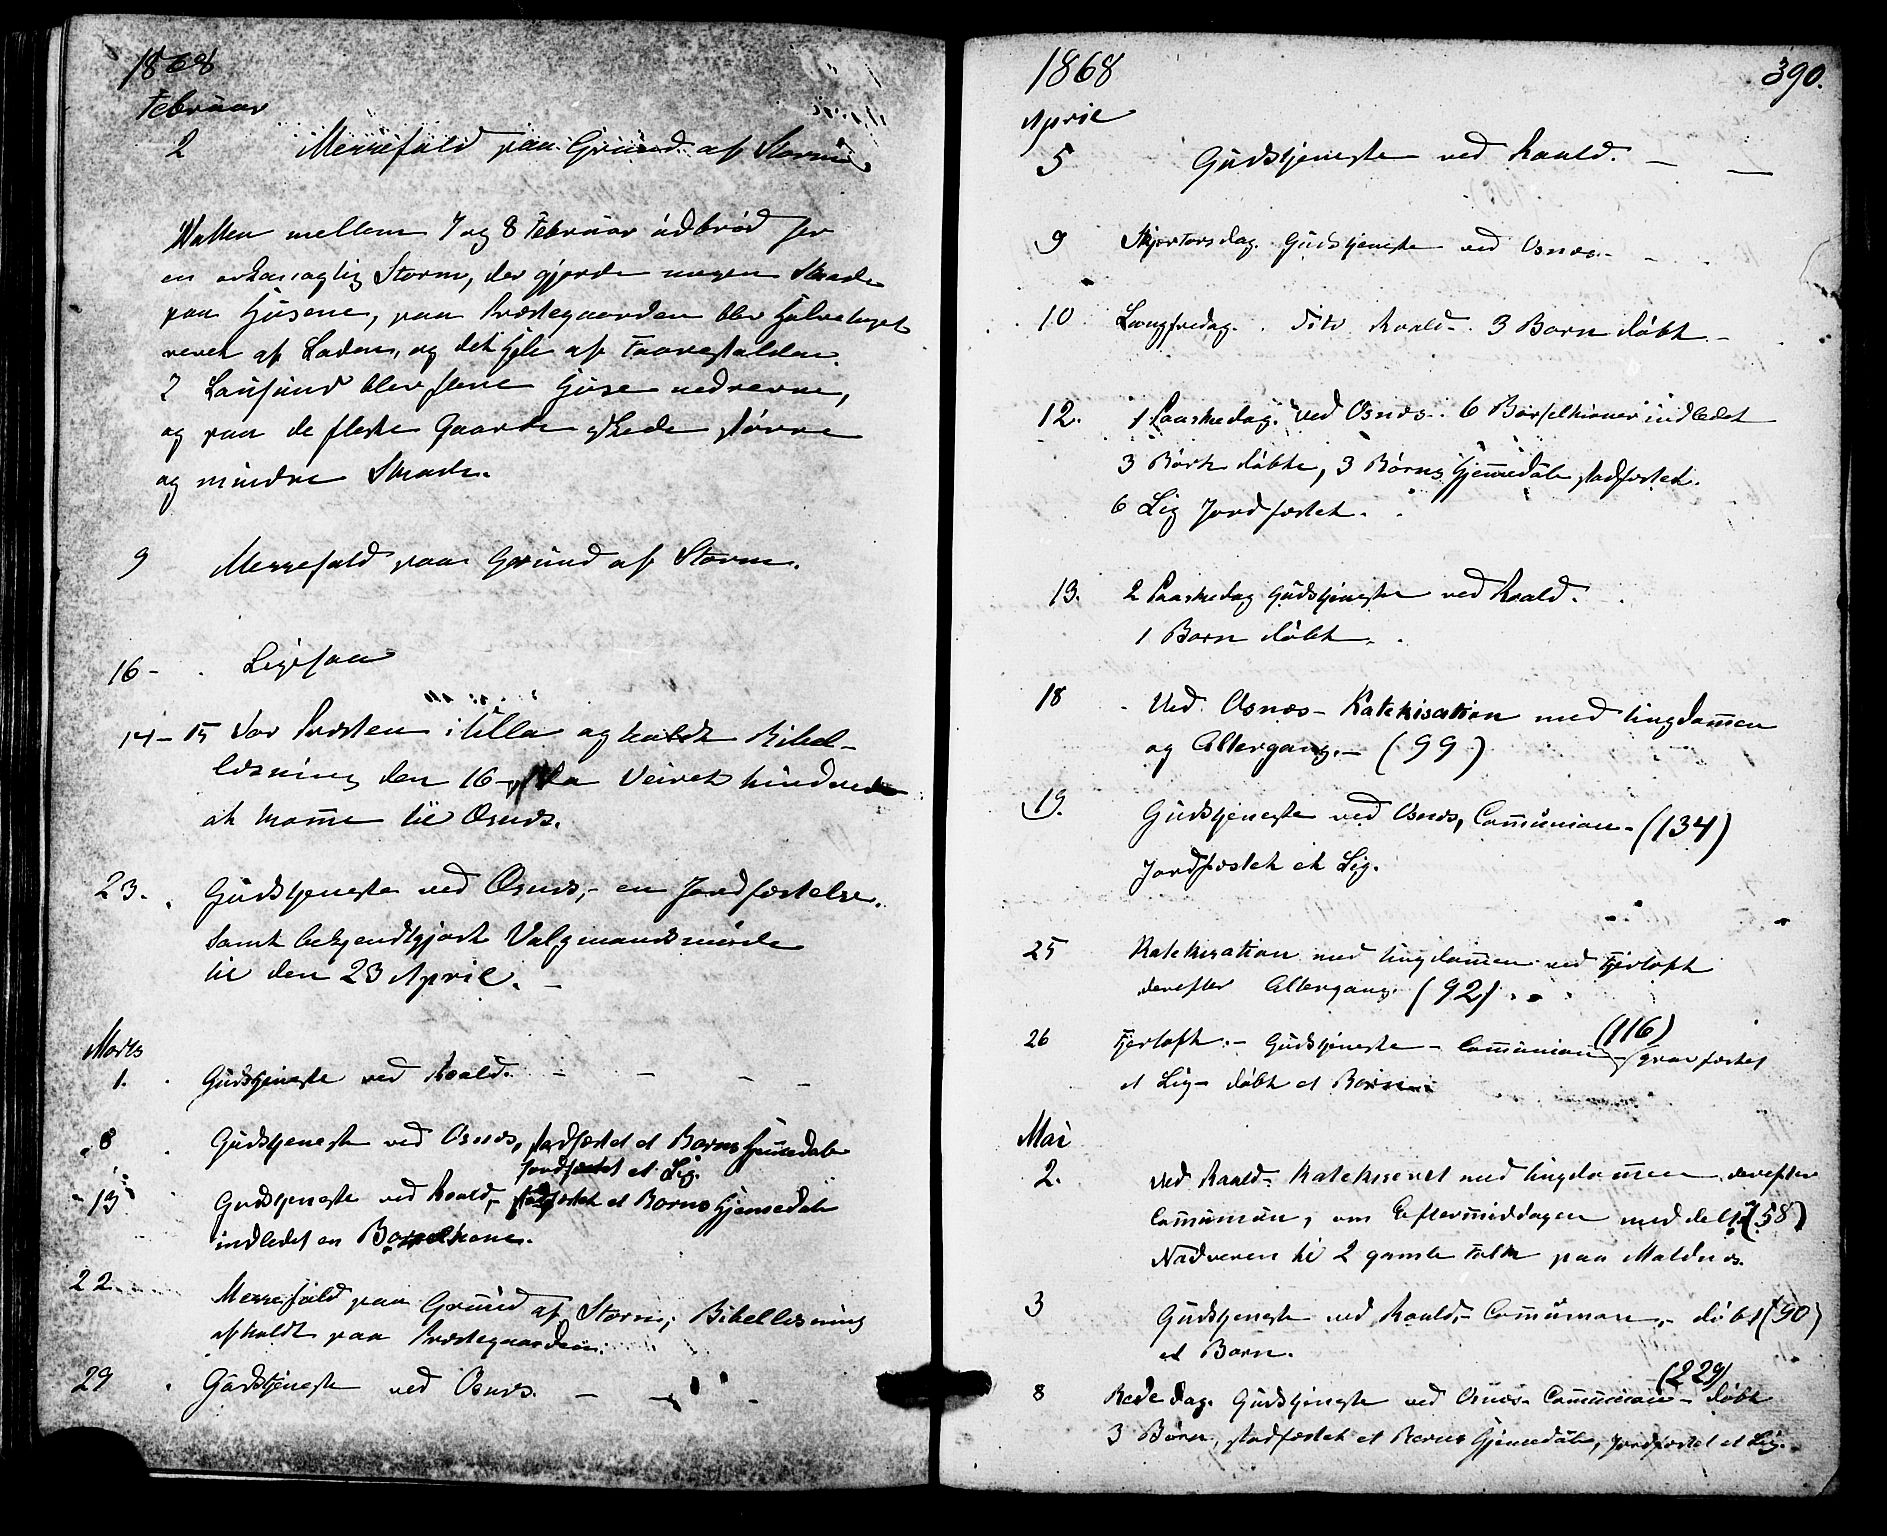 1868
Februar
2 Messefald paa Grund af Storm.
Natten mellem 7 og 8 Februar udbrød her
en orkanagtig Storm, der gjorde megen Skade
paa Husene, paa Præstegaarden blev Halvetaget
revet af Laden, og det Hele af Faarestalden.
I blev flere Huse nedrevne,
og paa de fleste Gaarde skede større
og mindre Skade.
9 Messefald paa Grund af Storm.
16 - Ligesaa
14-15 Var Præsten i Ulla og holdt Bibel-
læsning den 16 - da Veiret hindrede
at komme til Osnæs.
23. Gudstjeneste ved Osnæs, - en Jordfæstelse.
samt bekjendtgjort Valgmandsmøde
til den 23 April. -
Marts
1. Gudstjeneste ved Roald. - - - -
8 Gudstjeneste ved Osnæs, stadfæstet et Barns Hjemmedaab
Jordfæstet et Lig.
15 Gudstjeneste ved Roald, - stadfæstet et Barns Hjemmedaab
indledet en Barselkone.
22. Messefald paa Grund af Storm; Bibellæsning
afholdt paa Præstegaarden.
29 Gudstjeneste ved Osnæs. - -
1868 390.
April
5 Gudstjeneste ved Roald. - -
9 Skjertorsdag. Gudstjeneste ved Osnæs. -
10 Langfredag. Dito Roald. 3 Børn døbt. -
12. 1 Paaskedag. ved Osnæs. 6 Barselkoner indledet
3 Børn døbte, 3 Børns Hjemmedaab stadfæstet.
6 Lig Jordfæstet.
13. 2 Paaskedag Gudstjeneste ved Roald.
1 Barn døbt.
18 Ved Osnæs - Katekisation med Ungdommen
og Altergang. - (99)
19. Gudstjeneste ved Osnæs, Communion - (134)
Jordfæstet et Lig.
25 Katekisation med Ungdommen ved Fjørtoft
derefter Altergang. (92)
26 Fjørtoft. - Gudstjeneste - Communion (116) - Gravfæstet
et Lig - døbt et Barn.
Mai
2. Ved Roald - Katekiseret med Ungdommen derefter
Communion, om Eftermiddagen meddelt (58)
Nadveren til 2 gamle Folk paa Molnæs.
3 Gudstjeneste ved Roald, - Communion, - døbt (90)
et Barn.
8 Bededag. Gudstjeneste ved Osnæs - Communion - (229) døbt
3 Børn, stadfæstet et Barns Hjemmedaab, Jordfæstet et Lig. -